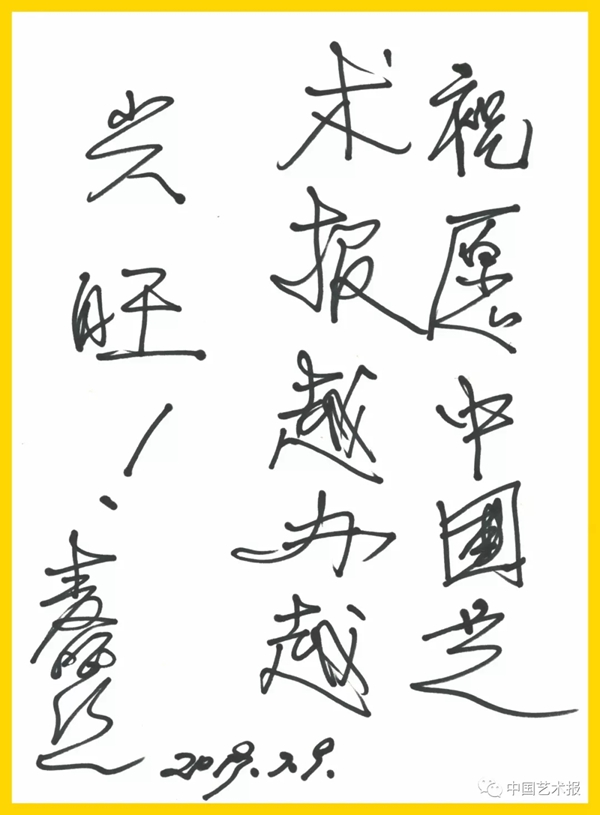 祝愿中国艺
术报越办越
兴旺！
2019.7.9.
中国艺术报